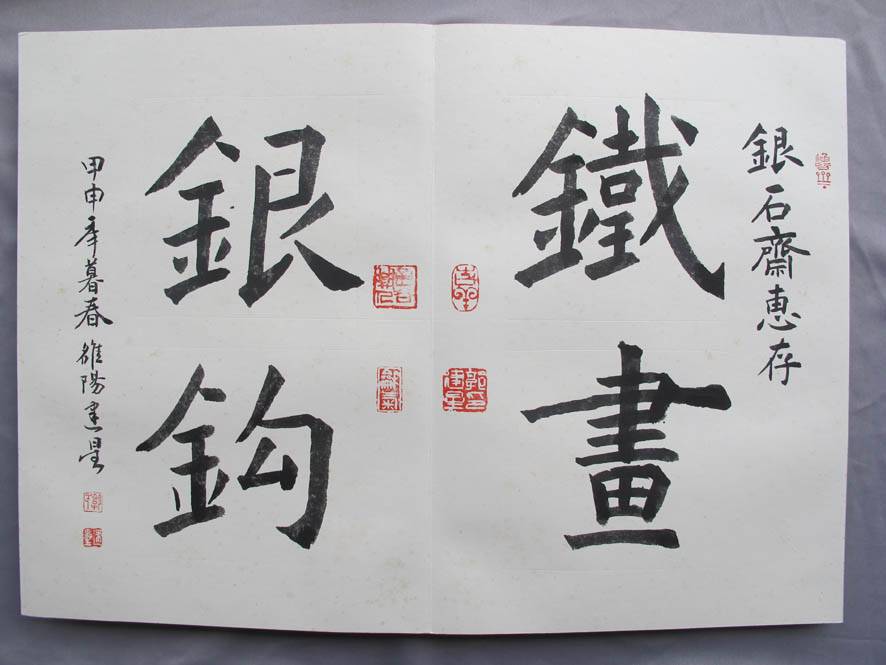 銀石齋惠存
鐵畫
銀鈎
甲申年暮春雒陽建星